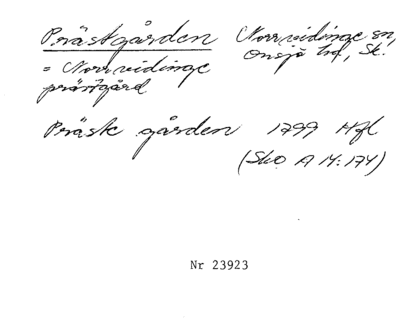 Prästgården Norrvidinge sn,
Onsjö hd, Sk.
= Norrvidinge
prästgård
Präste gården 1799 Hfl
(SkO A 14:174)
Nr 23923